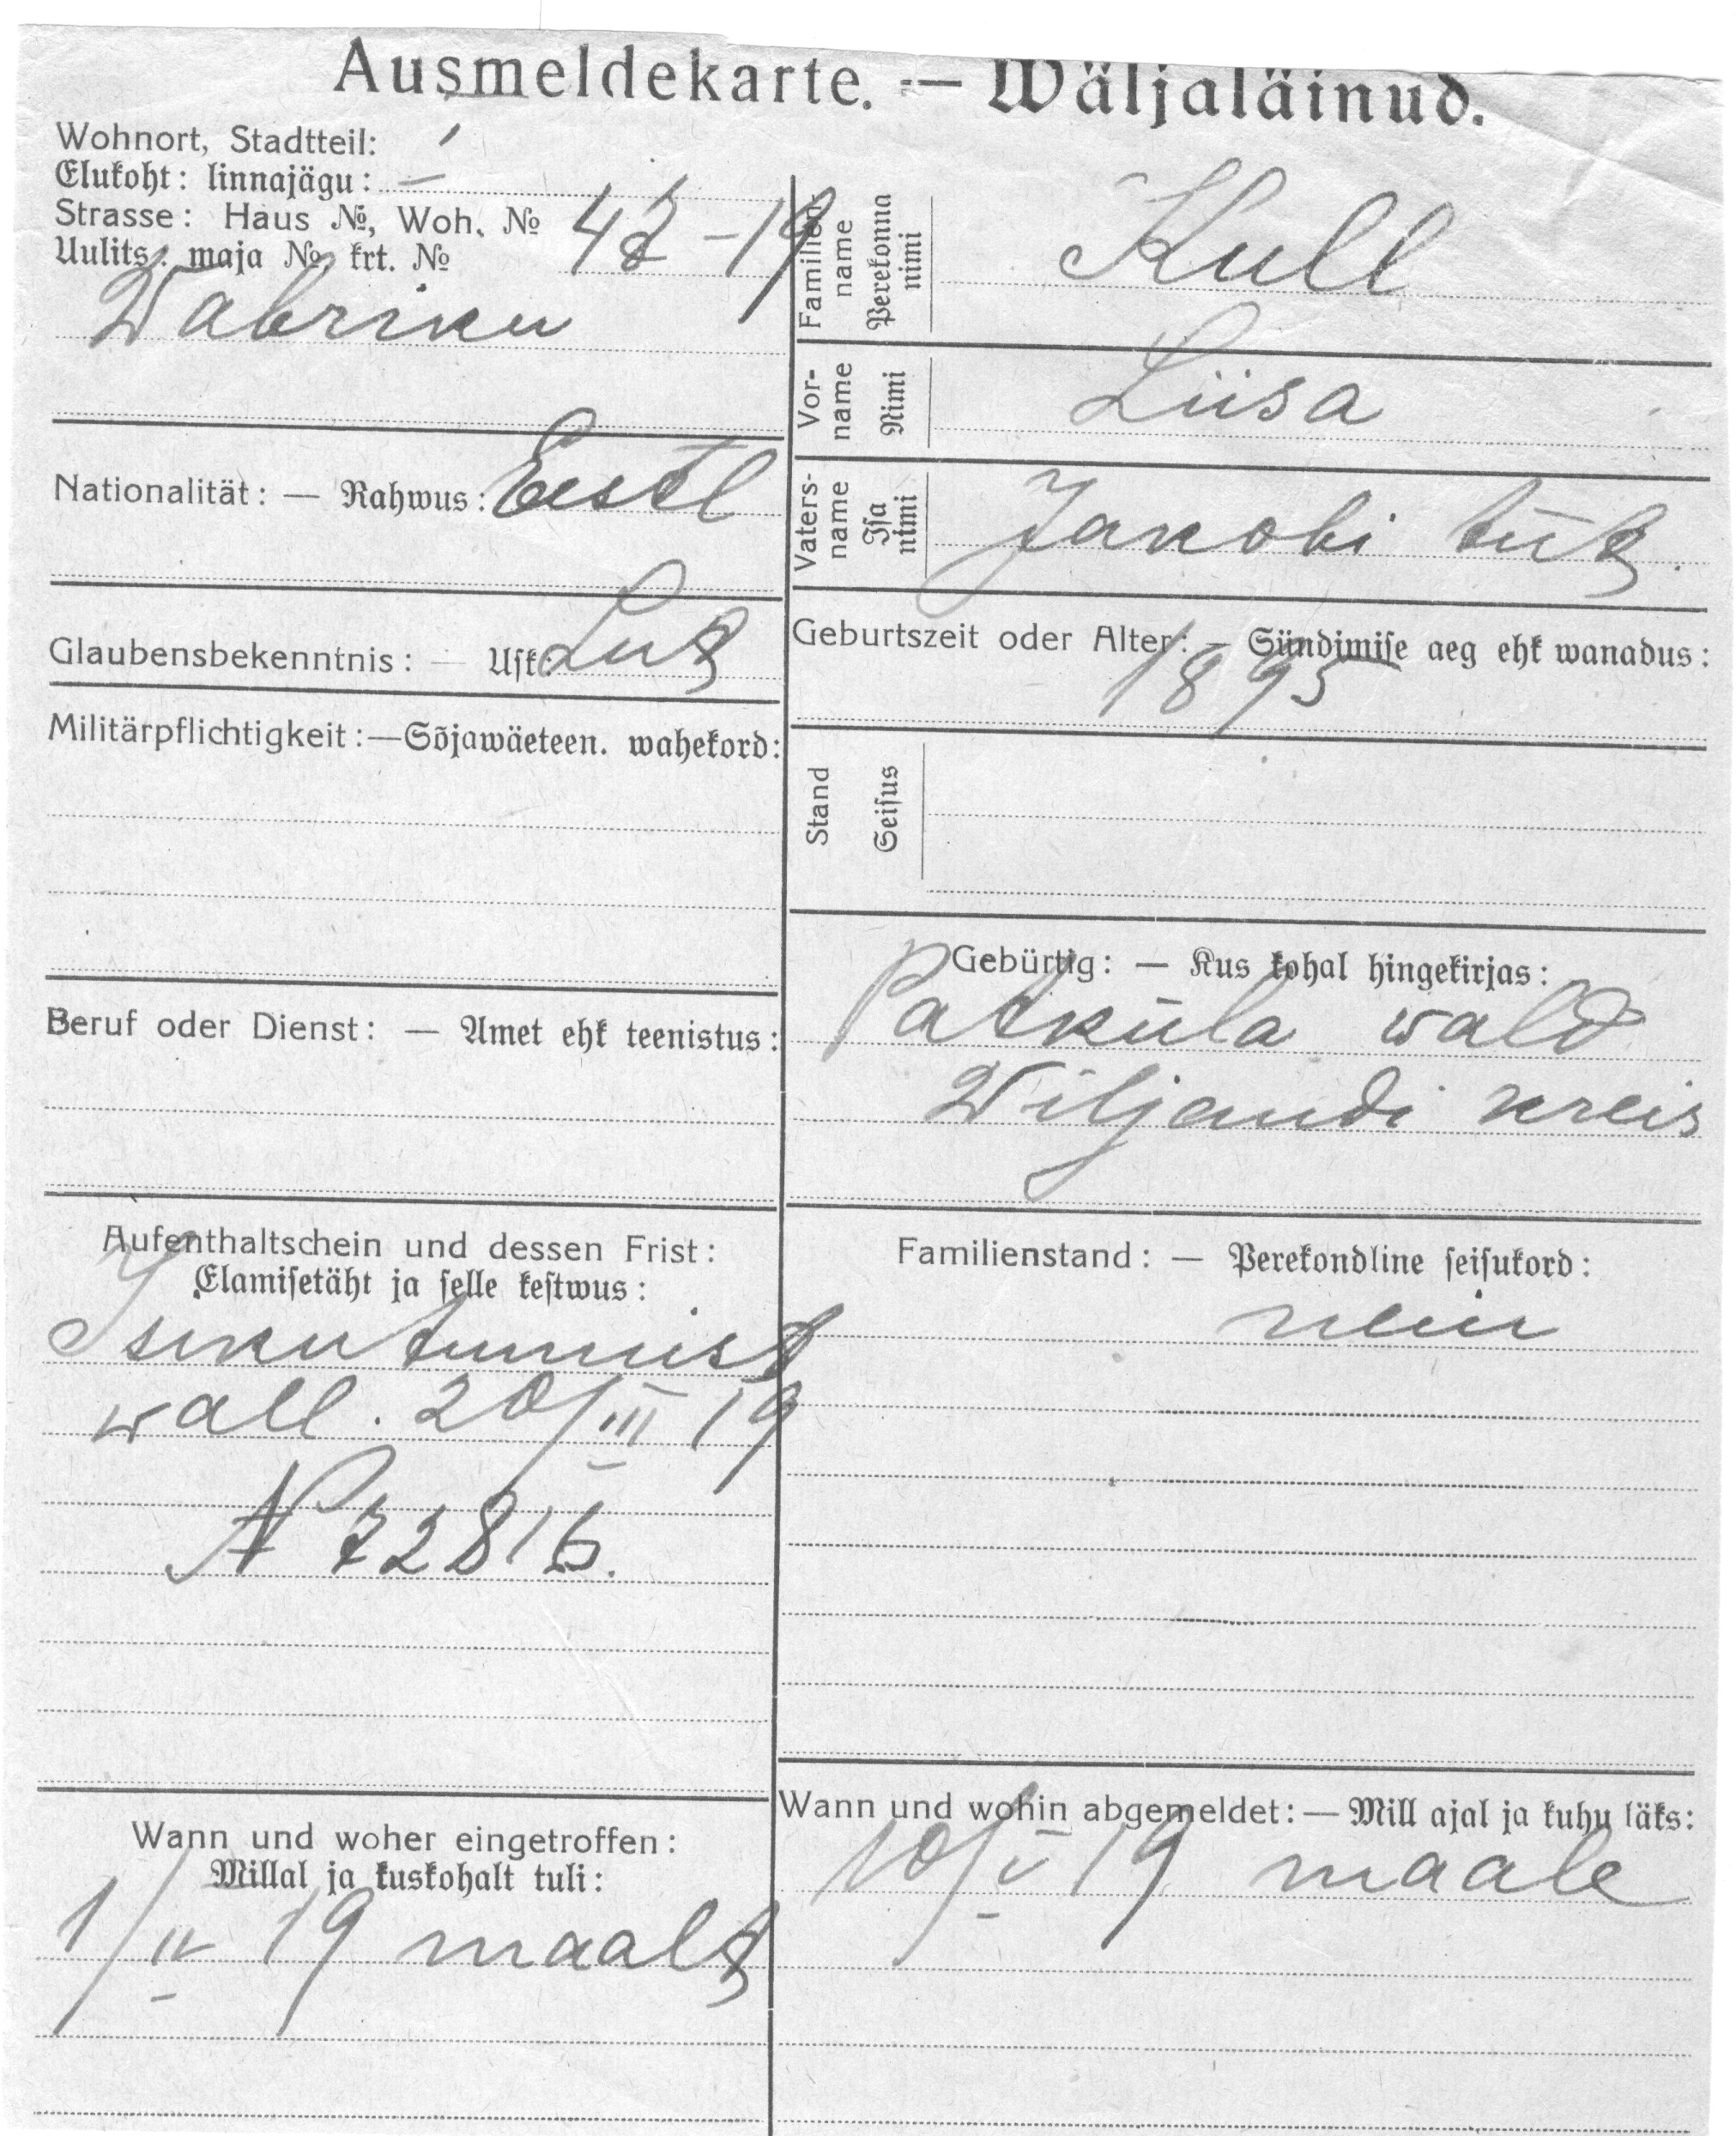 Ausmeldekarte. — Wäljaläinud.
Wohnort, Stadtteil: I
Elukoht: linnajägu:
Strasse: Haus №, Woh. №
Uulits: maja №, krt. № 42-19
Wabriku
Nationalität: — Rahwus: Eestl
Glaubensbekenntnis: — Usk: Lut
Militärpflichtigkeit: — Sõjawäeteen. wahekord:
Beruf oder Dienst: — Amet ehk teenistus:
Aufenthaltschein und dessen Frist:
Elamisetäht ja selle kestwus:
Isikutunnist
wall. 20/III 19
N 72816.
Wann und woher eingetroffen:
Millal ja kuskohalt tuli:
1/IV 19 maalt
Familien-
name
Perekonna
nimi
Kull
Vor-
name
Nimi
Liisa
Vaters-
name
Isa
nimi
Jakobi tüt.
Geburtszeit oder Alter: — Sündimise aeg ehk wanadus:
1895
Stand
Seisus
Gebürtig: — Kus kohal hingekirjas:
Patküla wald
Wiljandi kreis
Familienstand: — Perekondline seisukord:
neiu
Wann und wohin abgemeldet: — Mill ajal ja kuhu läks:
10/V 19 maale